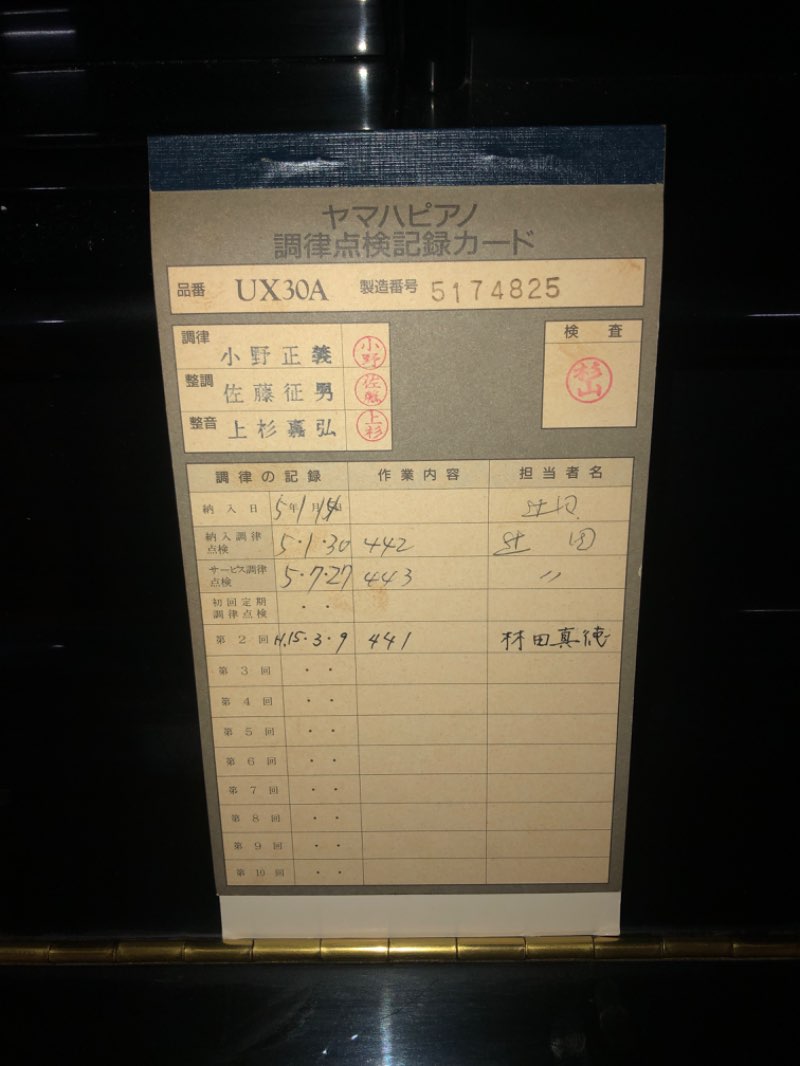 ヤマハピアノ
調律点検記録カード
品番 UX30A 製造番号 5174825
調律 小野正義 小野
整調 佐藤征男 佐藤
整音 上杉嘉弘 上杉
検査
杉山
調律の記録 作業内容 担当者名
納入日 5年1月
納入調律点検 5・1・30 442
サービス調律点検 5・7・27 443 〃
初回定期調律点検 ・・
第2回 H.15・3・9 441 林田真徳
第3回 ・・
第4回 ・・
第5回 ・・
第6回 ・・
第7回 ・・
第8回 ・・
第9回 ・・
第10回 ・・